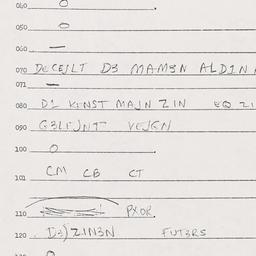 040 O
050 O
060 —
070 DECEILT D3 MAM3N ALD1N
071 —
080 D1 KENST MAJN ZIN EQ ZI
090 G3LEJNT VEJGN
100 O
101 CM CB CT
110 PXOR
120 D3) ZIN3N FUT3RS
O